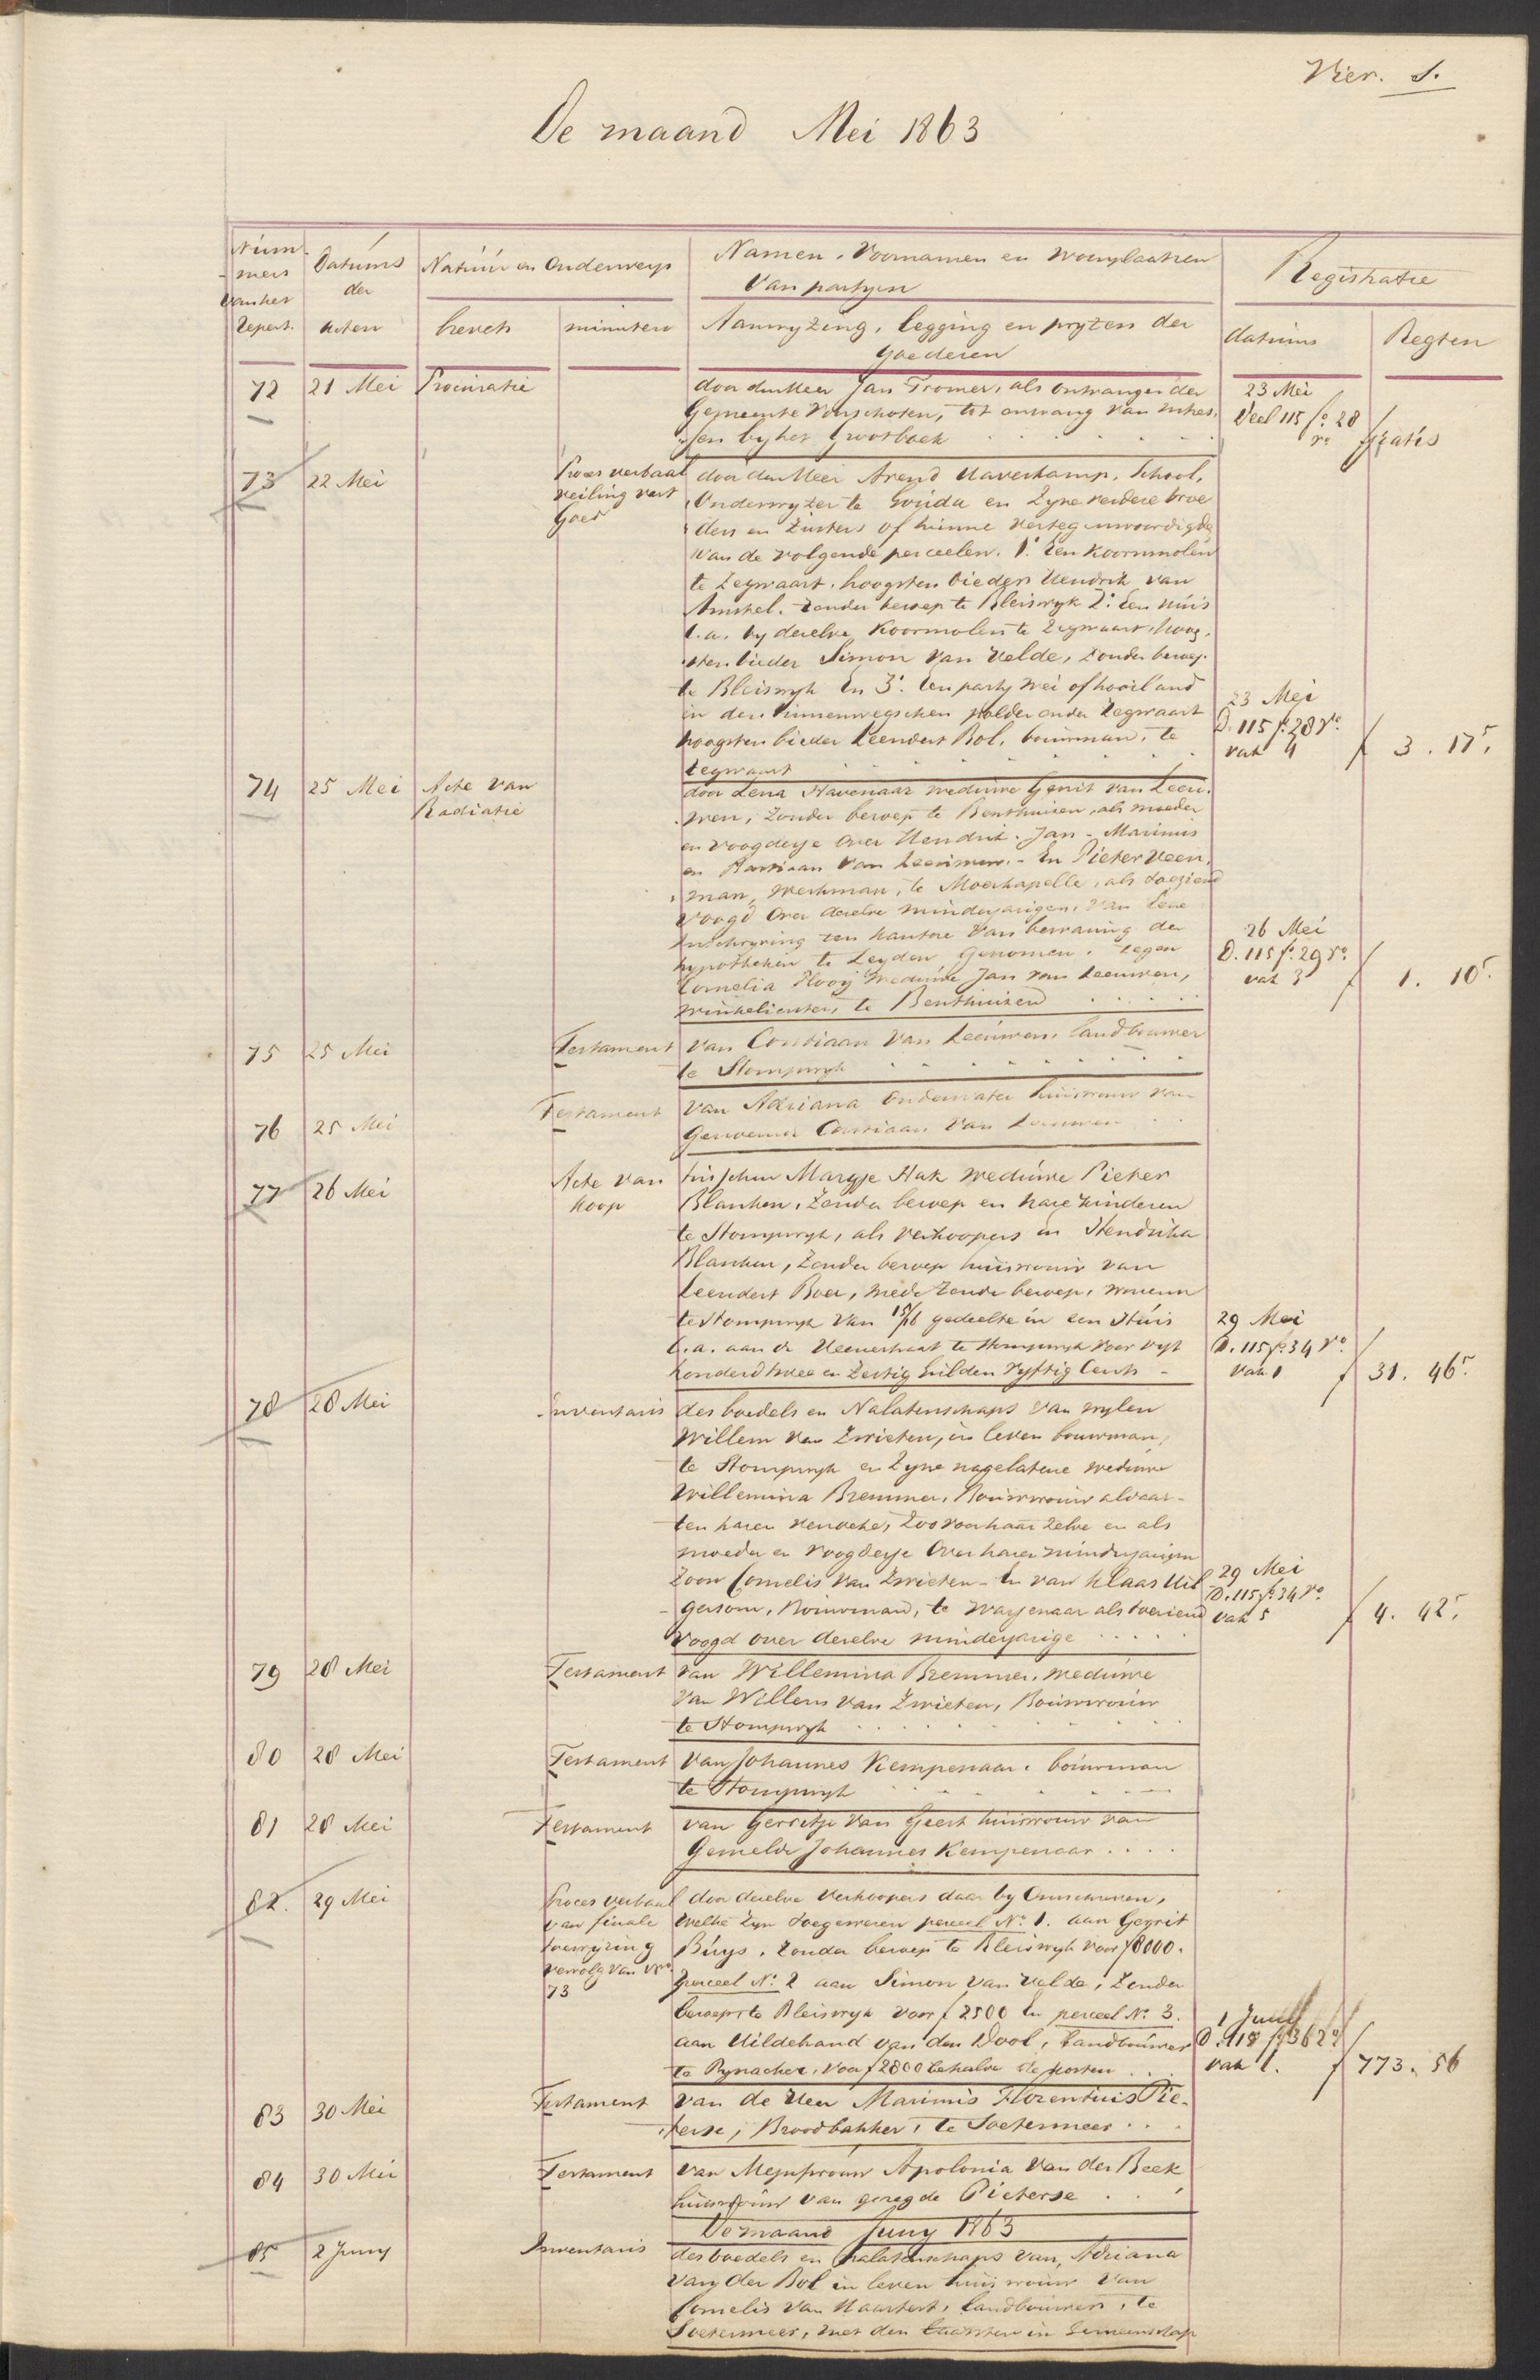 Vier. S.
De maand Mei 1863
Num
mers
van het
Repert.
Datums
der
Acten
Natuur en Onderwerp
brevets
minuten
Namen, Voornamen en woonplaatsen
Van partyen
Aanwyzing, legging en pryzen der
goederen
Registratie
datums
Regten
72
21 Mei
Procuratie
door den Heer Jan Tromer, als ontvanger der
Gemeente Voorschoten, tot ontvang van intres,
sen by het Grootboek
23 Mei
Deel 115 fo. 28
ro
gratis
73
22 Mei
Proces verbaal
veiling vast
Goed
door den Heer Arend Haverkamp, School,
Onderwyzer te Gouda en Zyne verdere broe
ders en Zusters of hunne vertegenwoordigde
van de volgende perceelen. 1o. Een Koornmolen
te Zegwaart. hoogsten bieder Hendrik van
Amstel. Zonder beroep te Bleiswyk 2o. Een Huis
c.a. by dezelve Koornmolen te Zegwaart, hoog,
sten bieder Simon van Velde, Zonder beroep
te Bleiswyk En 3o. Een party wei of hooiland
in den Binnenwegschen polder onder Zegwaart
hoogsten bieder Leendert Bol, bouwman, te
Zegwaart
23 Mei
D. 115 fo. 28 vo.
vak 4
f 3. 17 5.
74
25 Mei
Acte van
Radiatie
door Lena Havenaar weduwe Gerrit van Leeu,
wen, Zonder beroep te Benthuizen, als moeder
en voogdesse over Hendrik. Jan - Marinus
en Bastiaan van Leeuwen. - En Pieter Veen,
man, werkman, te Moerkapelle, als toeziend
Voogd Over dezelve minderjarigen, Van Eene
Inschryving ten kantore van bewaring der
hypotheken te Leyden, Genomen, tegen
Cornelia Plooij Weduwe Jan van Leeuwen,
winkelierster, te Benthuizen
26 Mei
D. 115 fo. 29 ro.
vak 3
f 1. 10 5.
75
25 Mei
Testament
van Corstiaan van Leeuwen, landbouwer
te Stompwyk
76
25 Mei
Testament
van Adriana Onderwater huisvrouw van
Genoemde Corstiaan van Leeuwen
77
26 Mei
Acte van
Koop
tusschen Margje Hak weduwe Pieter
Blanken, Zonder beroep en hare kinderen
te Stompwyk, als verkoopers en Hendrika
Blanken, Zonder beroep huisvrouw van
Leendert Boer, mede Zonder beroep, wonend
te Stompwyk van 15/16 gedeelte in een Huis
c.a. aan de Veenestraat te Stompwyk voor vyf
honderd twee en Zestig Gulden Vyftig Cents -
29 Mei
D. 115 fo. 34 ro.
vak 1
f 31. 46 5.
78
28 Mei
Inventaris
des boedels en Nalatenschaps van wylen
Willem van Zwieten, in leven bouwman,
te Stompwyk en Zyne nagelatene weduwe
Willemina Bremmer, Bouwvrouw aldaar -
ten haren verzoeke, Zoo voor haar Zelve en als
moeder en Voogdesse Over haren minderjarigen
Zoon Cornelis van Zwieten - En van Klaas Uit
Gersom, Bouwman, te Wassenaar als toeziend
Voogd over dezelve minderjarige
29 Mei
D. 115 fo. 34 vo.
vak 5
f 4. 42 5.
79
28 Mei
Testament
van Willemina Bremmer, weduwe
van Willem van Zwieten, Bouwvrouw
te Stompwyk
80
28 Mei
Testament
van Johannes Kempenaar, bouwman
te Stompwyk
81
28 Mei
Testament
van Gerretje van Geest huisvrouw van
Gemelde Johannes Kempenaar
82.
29 Mei
Proces verbaal
van finale
toewyzing
vervolg van No
73
door dezelve Verkoopers daar by Omschreven,
welke Zyn toegewezen perceel No. 1. aan Gerrit
Buys, Zonder beroep te Bleiswyk voor f 8000.
perceel No. 2 aan Simon van Velde, Zonder
beroep te Bleiswyk voor f 2500 En perceel No. 3.
aan Hildebrand van den Dool, Landbouwer
te Pynacker, voor f 2800 behalve de kosten
1 Juny
D. 118 fo. 36 ro
vak 1.
f 773. 56
83
30 Mei
Testament
van de Heer Marinus Florentius Pie-
terse, Broodbakker, te Soetermeer
84
30 Mei
Testament
van Mejufvrouw Apolonia van der Beek
huisvrouw van gezegde Pieterse
De maand Juny 1863
85
2 Juny
Inventaris
des boedels en Nalatenschaps van, Adriana
van der Bol in leven huisvrouw van
Cornelis van Haastert, landbouwer, te
Soetermeer, met den laatsten in Gemeenschap